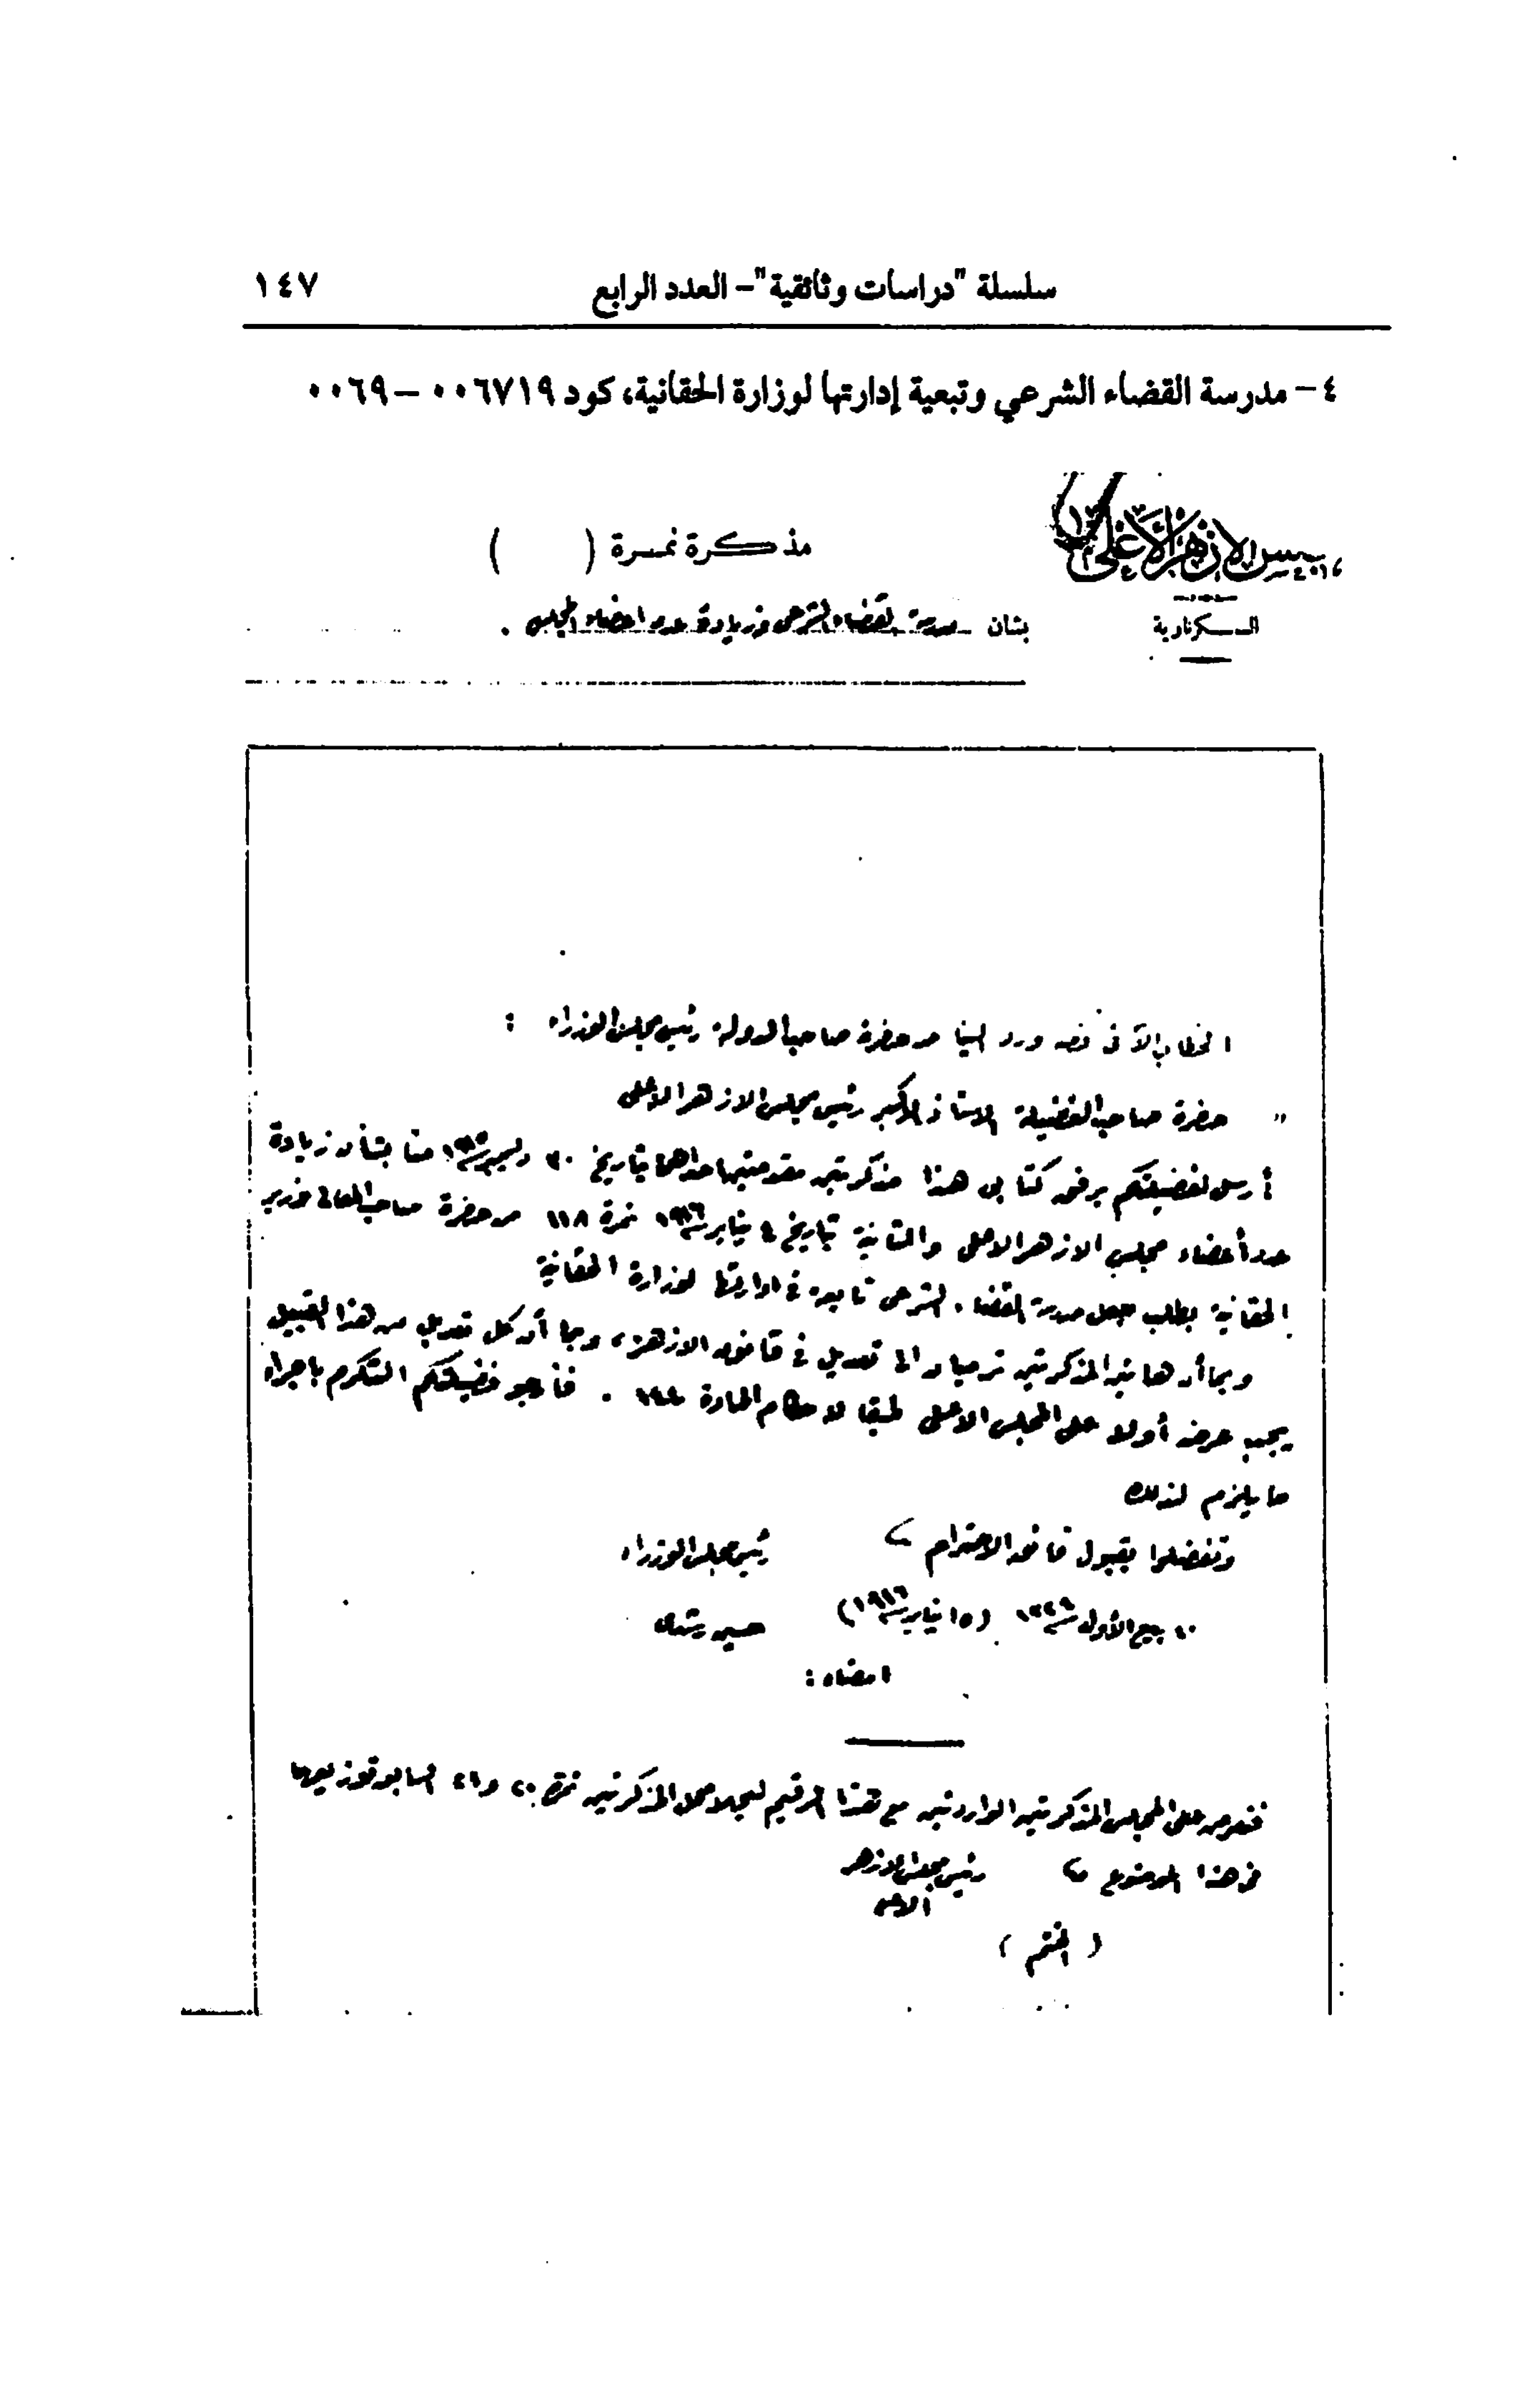 سلسلة "دراسات وثائقية"– العدد الرابع ١٤٧
٤– مدرسة القضاء الشرعي وتبعية إدارتها لوزارة الحقانية، كود ٠٠٦٧١٩ – ٠٠٦٩
الأزهر الأعلى
السكرتارية
مذكرة نمرة ( )
بشان مدرسة القضاء الشرعى وزيادة عدد اعضاء المجلس .
الخطاب الآتى نصه ورد الينا من حضرة صاحب الدولة رئيس مجلس الوزراء :
" حضرة صاحب الفضيلة الاستاذ الأكبر رئيس مجلس الازهر الاعلى
أرسل لفضيلتكم برفق كتابى هذا مذكرتين مقدمتين احداهما بتاريخ ٣٠ ديسمبر سنة ١٩١٥ منا بشأن زيادة
عدد أعضاء مجلس الازهر الاعلى والثانية بتاريخ ٤ يناير سنة ١٩١٦ نمرة ١١٨ من حضرة صاحب المعالى وزير
الحقانية بطلب جعل مدرسة القضاء الشرعى تابعة فى ادارتها لوزارة الحقانية
وبما أن هاتين المذكرتين ترميان الى تعديل فى قانون الازهر، وبما أن كل تعديل من هذا القبيل
يجب عرضه أولا على المجلس الاعلى طبقا لاحكام المادة . فأرجو فضيلتكم التكرم باجراء
ما يلزم لذلك
وتفضلوا بقبول فائق الاحترام
رئيس مجلس الوزراء
١٠ ربيع الأول سنة (١٥ يناير سنة ١٩١٦)
حسين رشدى
امضاء :
فنعرض على المجلس المذكرتين الواردتين مع هذا الرقيم ليحلا محل المذكرتين نمرتى ٢٠ و ٢١ السابق توزيعهما
فى هذا الموضوع
رئيس مجلس الازهر
الاعلى
( الختم )